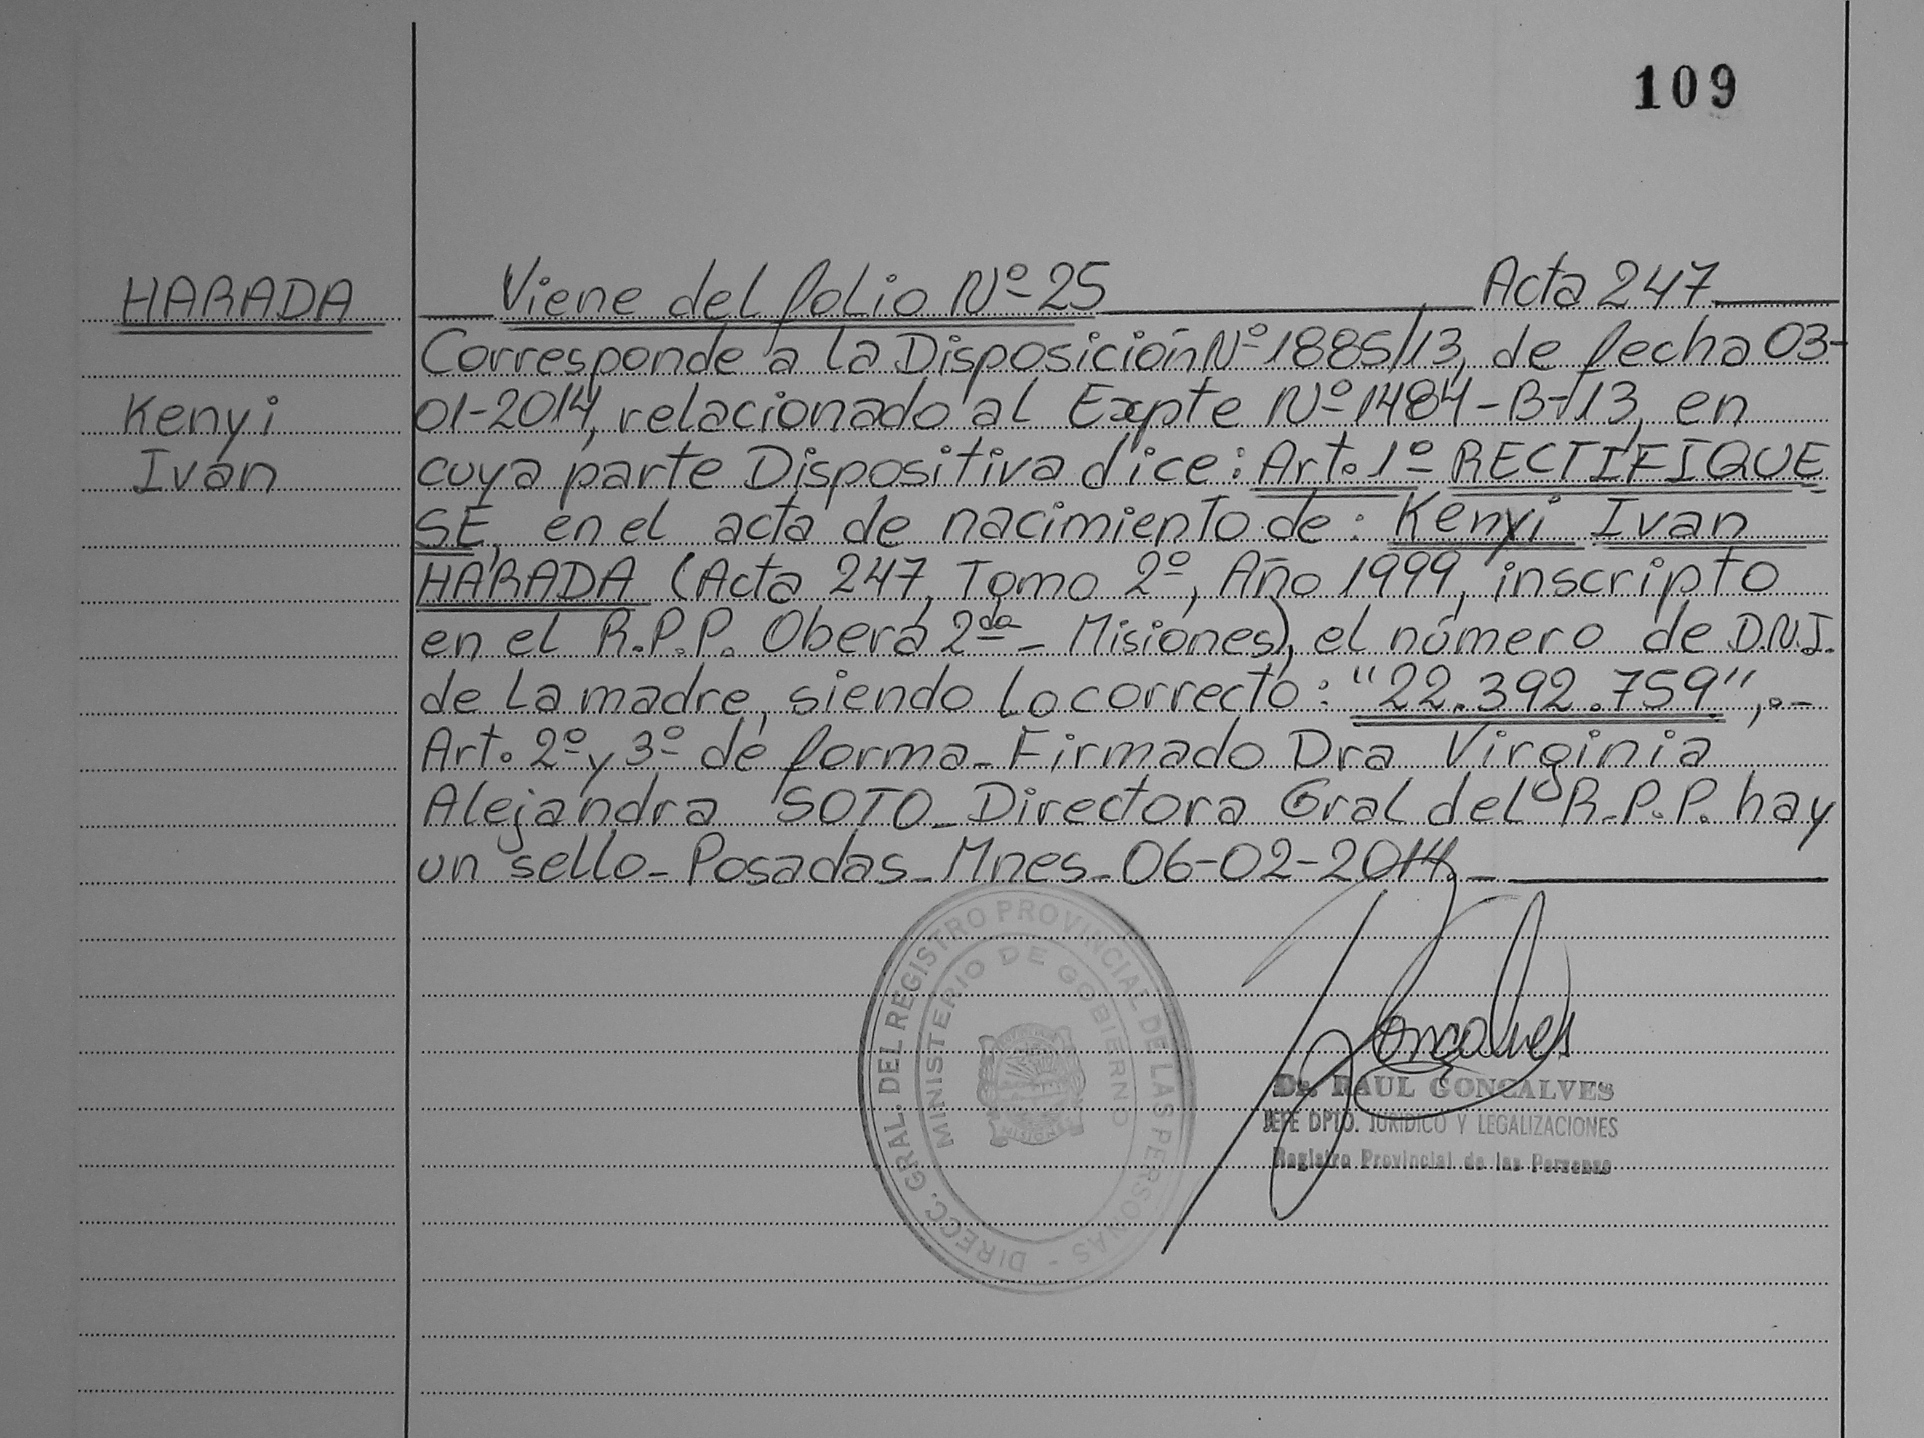 109
HARADA
Kenyi
Ivan
Viene del folio Nº 25 Acta 247
Corresponde a la Disposición Nº 1885/13, de fecha 03-
01-2014, relacionado al Expte Nº 1484-B-13, en
cuya parte Dispositiva dice: Art. 1º RECTIFIQUE
SE, en el acta de nacimiento de: Kenyi Ivan
HARADA (Acta 247, Tomo 2º, Año 1999, inscripto
en el R.P.P. Oberá 2da - Misiones), el número de D.N.I.
de la madre, siendo lo correcto: "22.392.759",.-
Art. 2º y 3º de forma - Firmado Dra Virginia
Alejandra SOTO - Directora Gral del R.P.P. hay
un sello - Posadas - Mnes - 06-02-2014 -
DIRECC. GRAL. DEL REGISTRO PROVINCIAL DE LAS PERSONAS -
MINISTERIO DE GOBIERNO
MISIONES
Goncalves
Dr. RAUL GONCALVES
JEFE DPTO. JURIDICO Y LEGALIZACIONES
Registro Provincial de las Personas